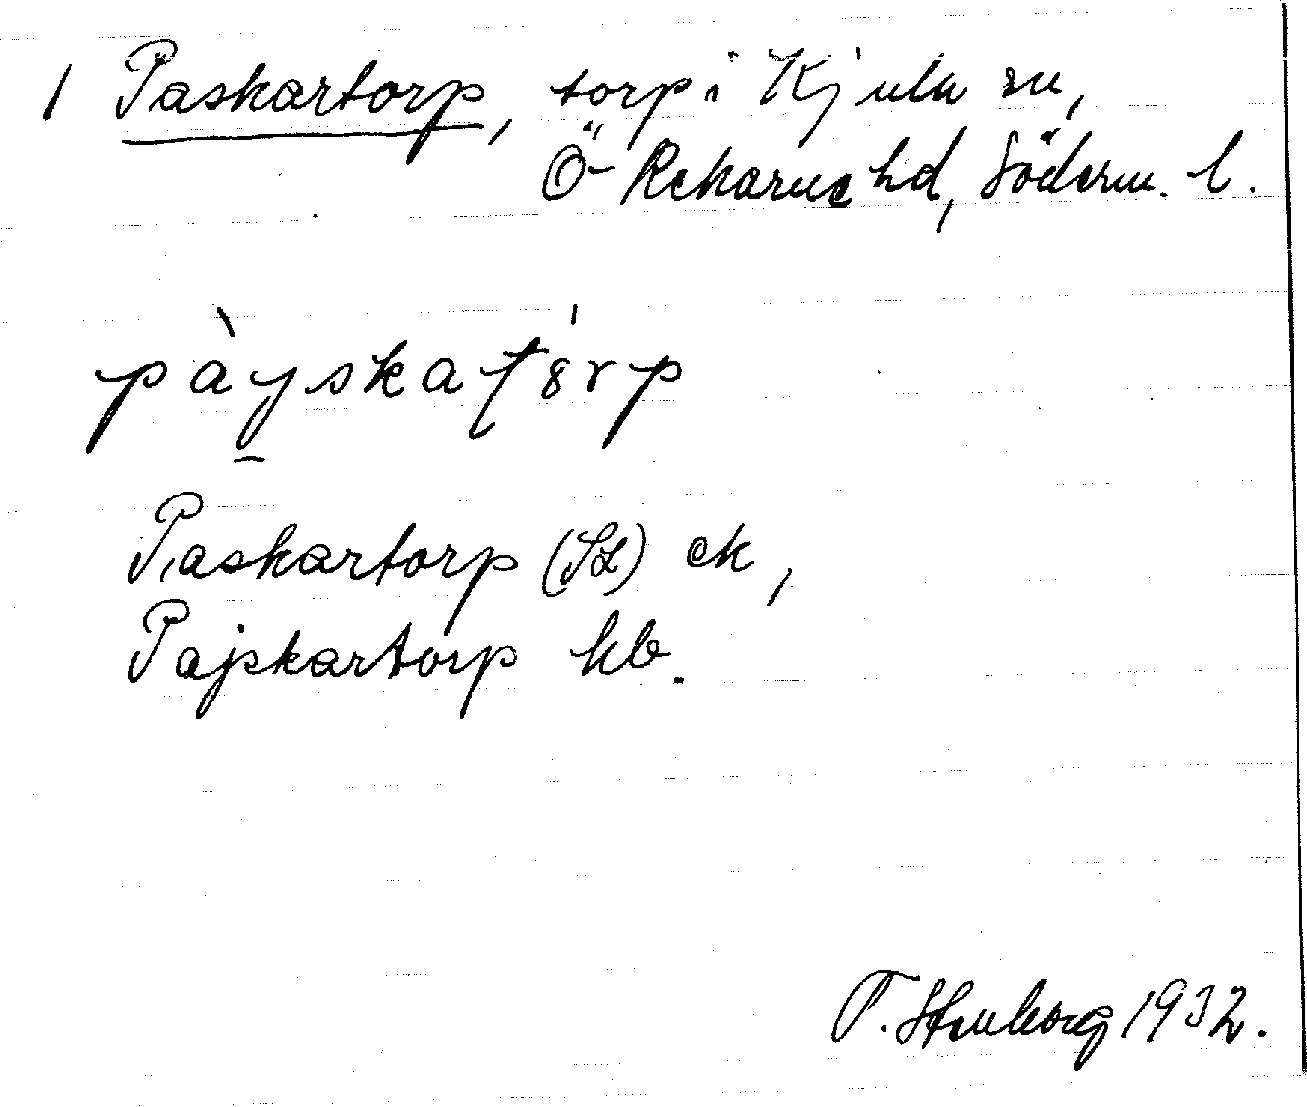 1 Paskartorp, torp i Kjula sn,
Ö Rekarne hd, Söderm. l.
pàyskaʈórp
Paskartorp (St) ek,
Pajskartorp kb.
T. Stenborg 1932.